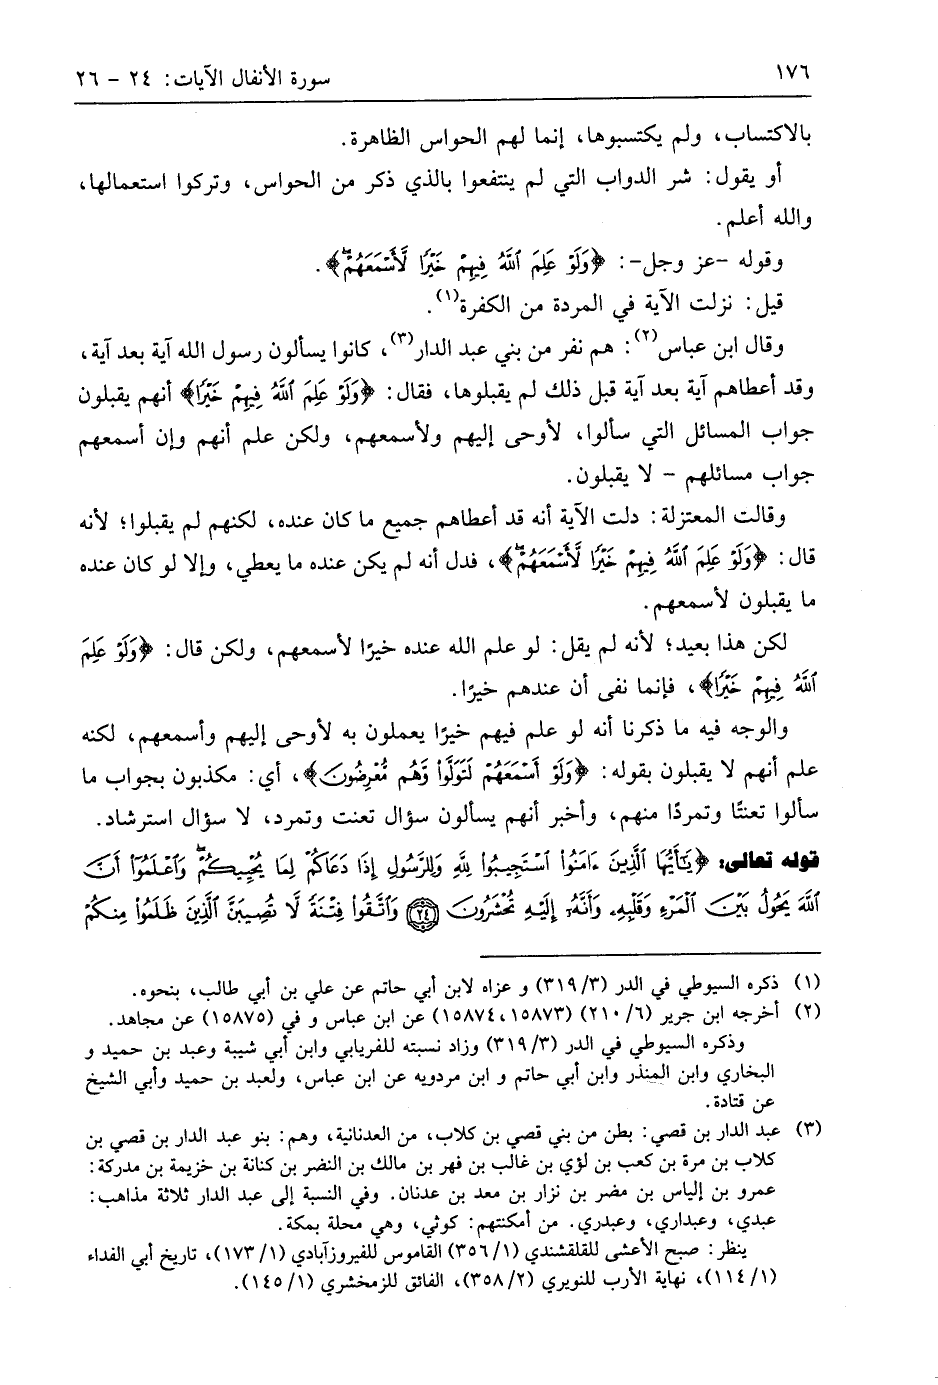 ١٧٦
سورة الأنفال الآيات: ٢٤ - ٢٦
بالاكتساب، ولم يكتسبوها، إنما لهم الحواس الظاهرة.
أو يقول: شر الدواب التي لم ينتفعوا بالذي ذكر من الحواس، وتركوا استعمالها،
والله أعلم.
وقوله -عز وجل-: ﴿وَلَوْ عَلِمَ ٱللَّهُ فِيهِمْ خَيْرًا لَّأَسْمَعَهُمْۖ﴾.
قيل: نزلت الآية في المردة من الكفرة(١).
وقال ابن عباس(٢): هم نفر من بني عبد الدار(٣)، كانوا يسألون رسول الله آية بعد آية،
وقد أعطاهم آية بعد آية قبل ذلك لم يقبلوها، فقال: ﴿وَلَوْ عَلِمَ ٱللَّهُ فِيهِمْ خَيْرًا﴾ أنهم يقبلون
جواب المسائل التي سألوا، لأوحى إليهم ولأسمعهم، ولكن علم أنهم وإن أسمعهم
جواب مسائلهم - لا يقبلون.
وقالت المعتزلة: دلت الآية أنه قد أعطاهم جميع ما كان عنده، لكنهم لم يقبلوا؛ لأنه
قال: ﴿وَلَوْ عَلِمَ ٱللَّهُ فِيهِمْ خَيْرًا لَّأَسْمَعَهُمْۖ﴾، فدل أنه لم يكن عنده ما يعطي، وإلا لو كان عنده
ما يقبلون لأسمعهم.
لكن هذا بعيد؛ لأنه لم يقل: لو علم الله عنده خيرًا لأسمعهم، ولكن قال: ﴿وَلَوْ عَلِمَ
ٱللَّهُ فِيهِمْ خَيْرًا﴾، فإنما نفى أن عندهم خيرًا.
والوجه فيه ما ذكرنا أنه لو علم فيهم خيرًا يعملون به لأوحى إليهم وأسمعهم، لكنه
علم أنهم لا يقبلون بقوله: ﴿وَلَوْ أَسْمَعَهُمْ لَتَوَلَّوا۟ وَّهُم مُّعْرِضُونَ﴾، أي: مكذبون بجواب ما
سألوا تعنتًا وتمردًا منهم، وأخبر أنهم يسألون سؤال تعنت وتمرد، لا سؤال استرشاد.
قوله تعالى: ﴿يَٰٓأَيُّهَا ٱلَّذِينَ ءَامَنُوا۟ ٱسْتَجِيبُوا۟ لِلَّهِ وَلِلرَّسُولِ إِذَا دَعَاكُمْ لِمَا يُحْيِيكُمْۖ وَٱعْلَمُوٓا۟ أَنَّ
ٱللَّهَ يَحُولُ بَيْنَ ٱلْمَرْءِ وَقَلْبِهِۦ وَأَنَّهُۥٓ إِلَيْهِ تُحْشَرُونَ ﴿٢٤﴾ وَٱتَّقُوا۟ فِتْنَةً لَّا تُصِيبَنَّ ٱلَّذِينَ ظَلَمُوا۟ مِنكُمْ
(١) ذكره السيوطي في الدر (٣١٩/٣) و عزاه لابن أبي حاتم عن علي بن أبي طالب، بنحوه.
(٢) أخرجه ابن جرير (٢١٠/٦) (١٥٨٧٣، ١٥٨٧٤) عن ابن عباس و في (١٥٨٧٥) عن مجاهد.
وذكره السيوطي في الدر (٣١٩/٣) وزاد نسبته للفريابي وابن أبي شيبة وعبد بن حميد و
البخاري وابن المنذر وابن أبي حاتم و ابن مردويه عن ابن عباس، ولعبد بن حميد وأبي الشيخ
عن قتادة.
(٣) عبد الدار بن قصي: بطن من بني قصي بن كلاب، من العدنانية، وهم: بنو عبد الدار بن قصي بن
كلاب بن مرة بن كعب بن لؤي بن غالب بن فهر بن مالك بن النضر بن كنانة بن خزيمة بن مدركة:
عمرو بن إلياس بن مضر بن نزار بن معد بن عدنان. وفي النسبة إلى عبد الدار ثلاثة مذاهب:
عبدي، وعبداري، وعبدري. من أمكنتهم: كوثي، وهي محلة بمكة.
ينظر: صبح الأعشى للقلقشندي (٣٥٦/١) القاموس للفيروزآبادي (١٧٣/١)، تاريخ أبي الفداء
(١١٤/١)، نهاية الأرب للنويري (٣٥٨/٢)، الفائق للزمخشري (١٤٥/١).